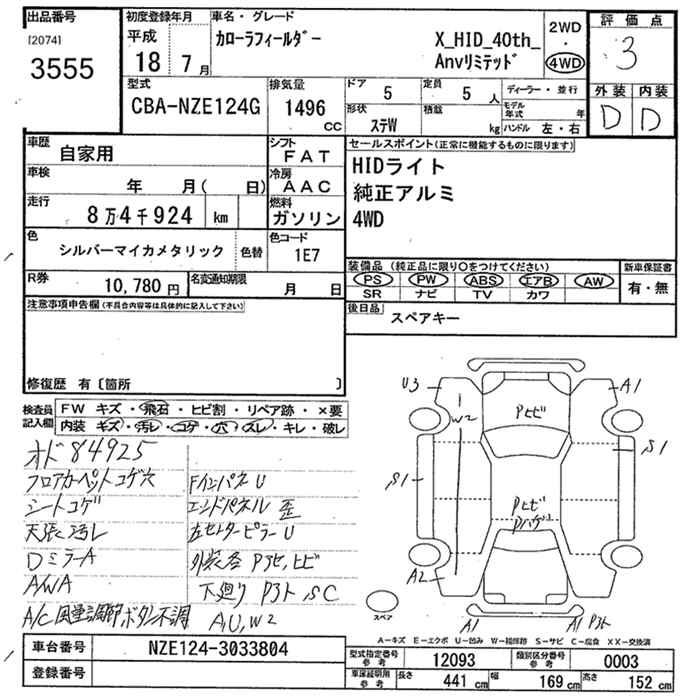 出品番号
[2074]
3555
初度登録年月
平成
18 7月
車名・グレード
カローラフィールダー
X_HID_40th_
Anvリミテッド
2WD
・
4WD
評価点
3
外装 内装
D D
型式
CBA-NZE124G
排気量
1496
cc
ドア
5
定員
5人
形状
ステW
積載
kg
ディーラー・並行
モデル年式 年
ハンドル 左・右
車歴
自家用
シフト
FAT
車検
年 月( 日)
冷房
AAC
走行
8万4千924 km
燃料
ガソリン
色
シルバーマイカメタリック
色替
色コード
1E7
R券
10,780円
名変通知期限
月 日
セールスポイント(正常に機能するものに限ります)
HIDライト
純正アルミ
4WD
装備品(純正品に限り○をつけてください)
PS PW ABS エアB AW
SR ナビ TV カワ
新車保証書
有・無
後日品
スペアキー
注意事項申告欄(不具合内容等は具体的に記入して下さい)
修復歴 有〔箇所 〕
検査員記入欄
FW キズ・飛石・ヒビ割・リペア跡・×要
内装 キズ・汚レ・コゲ・穴・スレ・キレ・破レ
オド84925
フロアカーペットコゲ穴
シートコゲ
天張汚レ
DミラーA
AWA
A/C風量調節ボタン不調
FインパネU
エンドパネル歪
左センターピラーU
外装各P3セ,ヒビ
下廻りP3ト,SC
A,U,W2
U3
A1
W2
Pヒビ
S1
S1
Pヒビ
Pハゲ
A2
A1
A1 P3ト
スペア
A-キズ E-エクボ U-凹み W-補修跡 S-サビ C-腐食 XX-交換済
車台番号
NZE124-3033804
登録番号
型式指定番号
参考
12093
類別区分番号
参考
0003
車庫証明用
参考
長さ
441 cm
幅
169 cm
高さ
152 cm